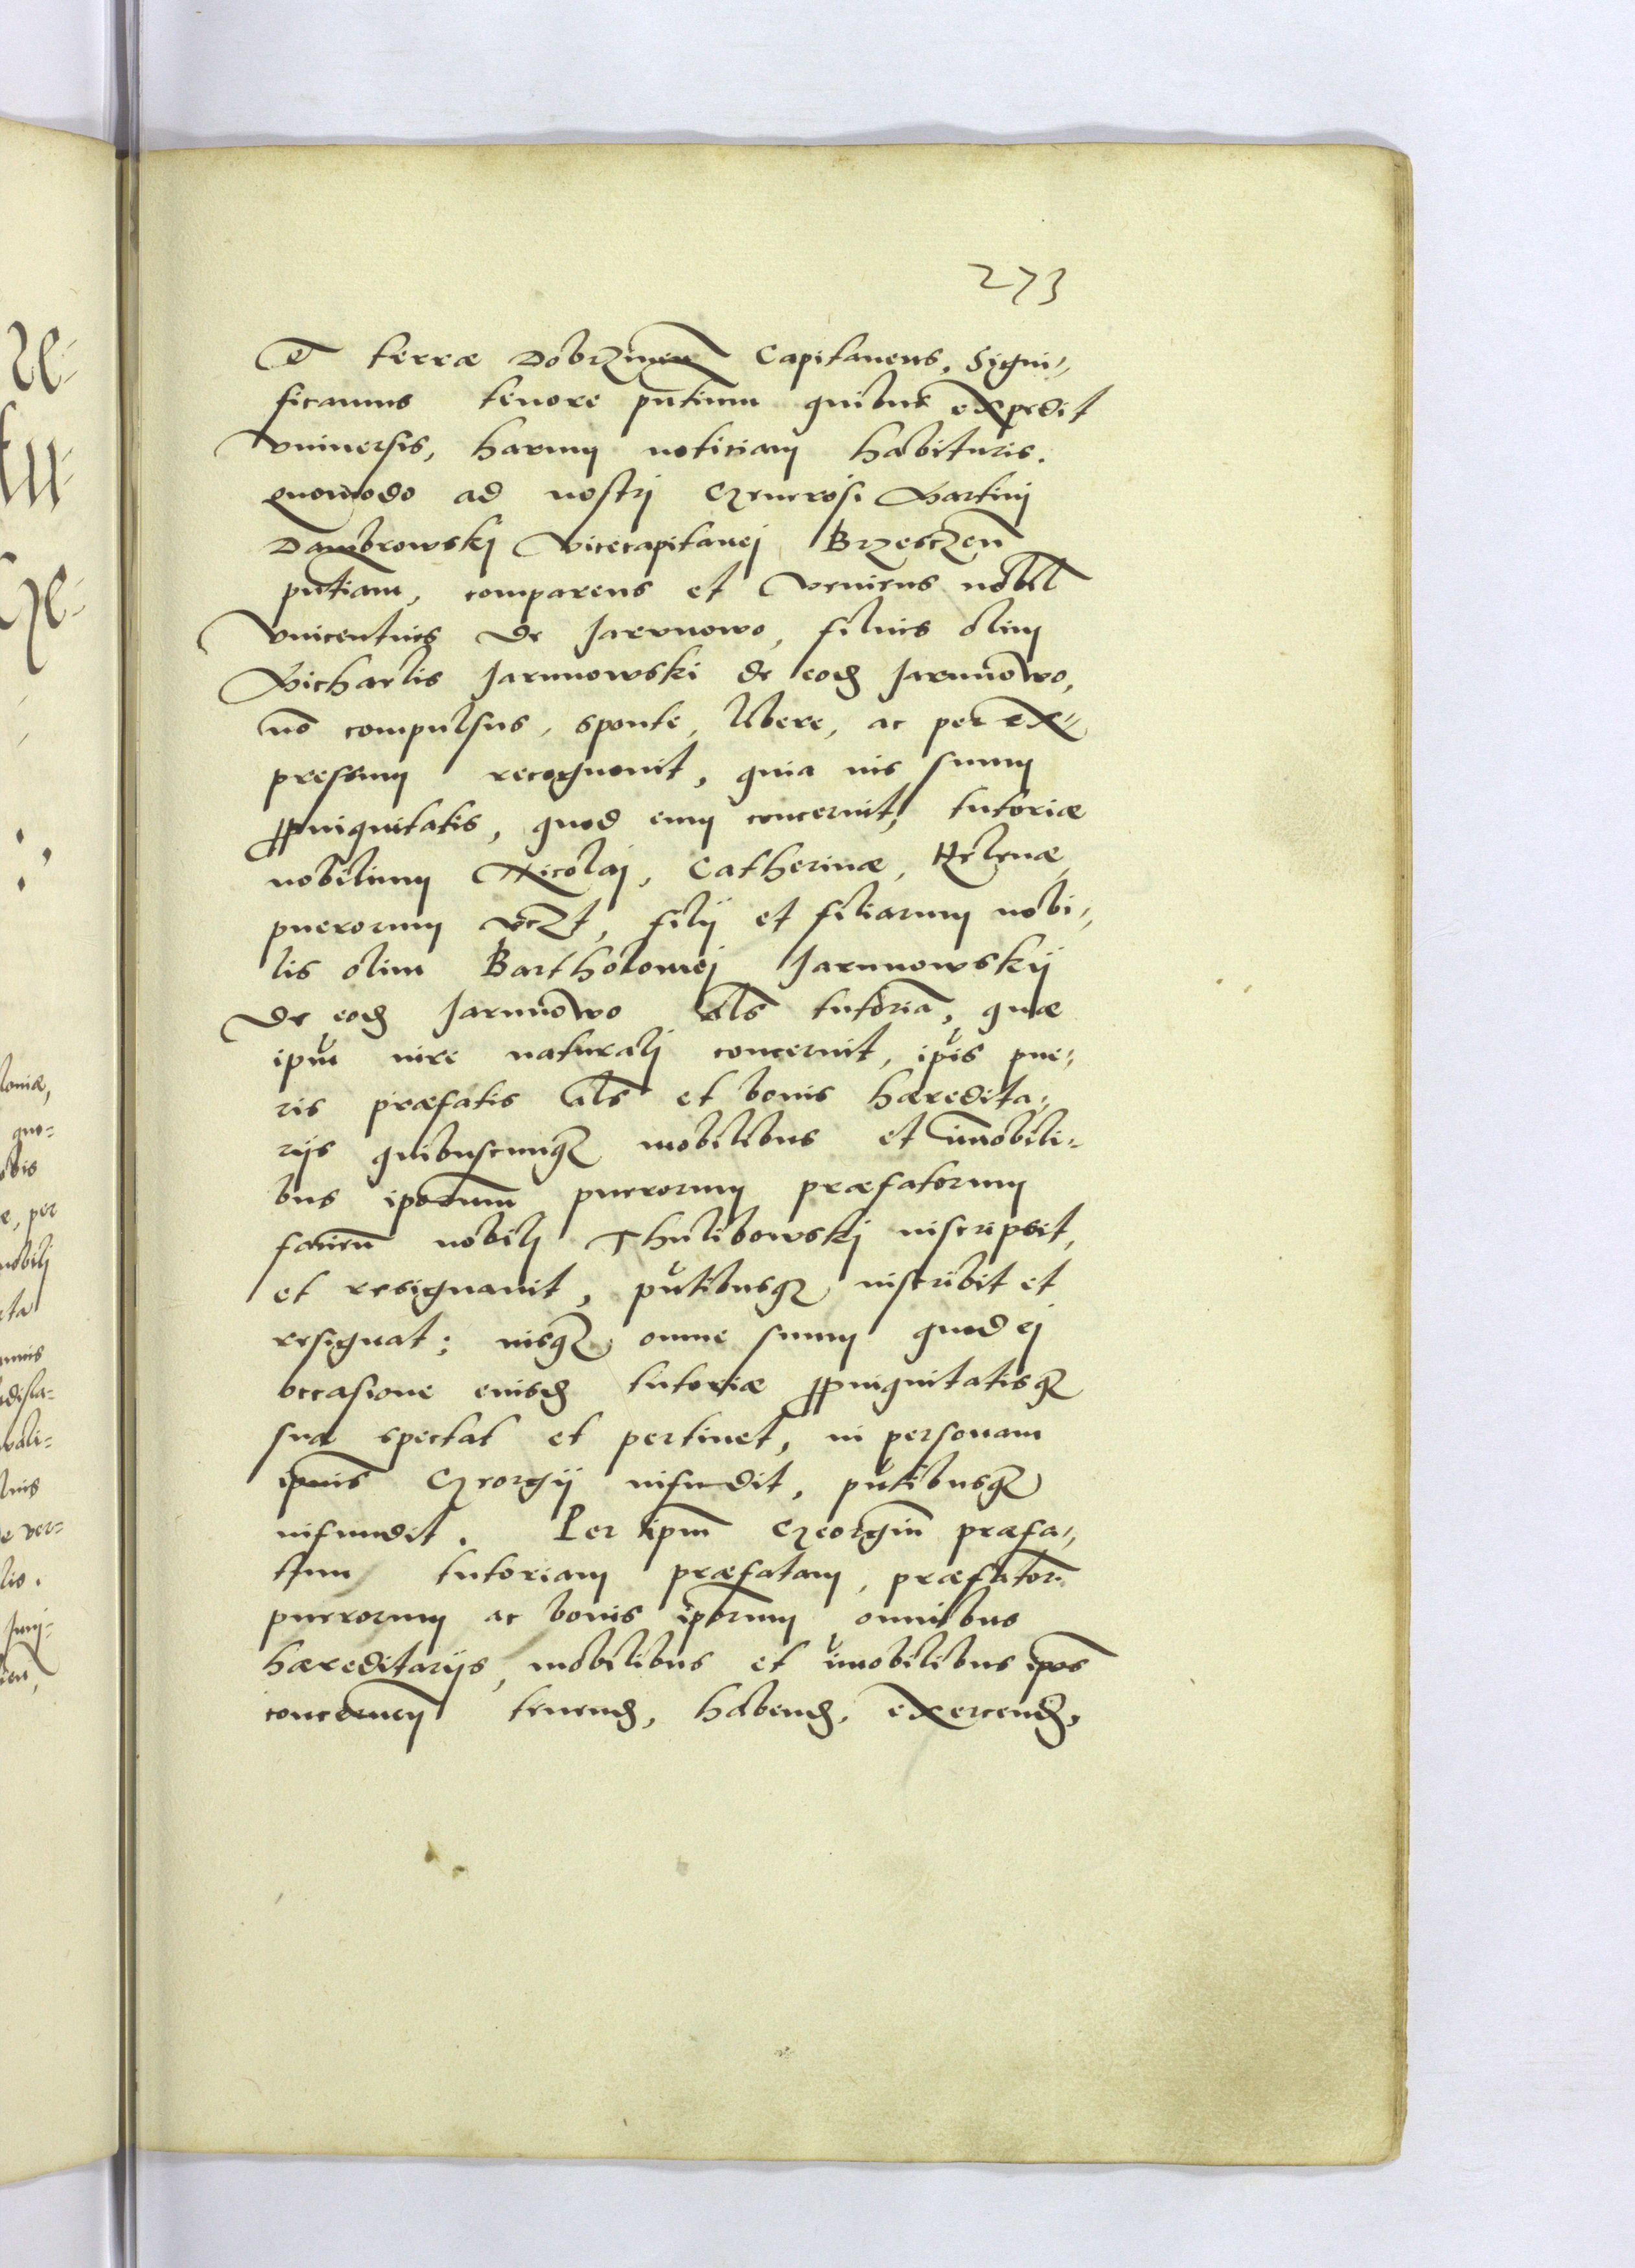 273
Et terræ Dobrzinen̄ Capitaneus, Signi⸗
ficamus tenore pn̄tium quibus expedit
Vniuersis, harum noticiam habituris.
quomodo ad nostrj Generosi Martinj
Dambrowskj Vicecapitanej Brzesczen̄
pn̄tiam, comparens et veniens nobil̄
Vincentius de Jarunowo, filius olim
Michaelis Jarunowski de eod̄ Jarunowo,
nō compulsus, sponte, libere, ac per ex⸗
pressum recognouit, quia ius suum
ꝓpinquitatis, quod eum concernit, tutoriæ
nobilium Nicolaj, Catherinæ, Helenæ,
puerorum vczt, filij et filiarum nobi⸗
lis olim Bartholomej Jarunowskij
de eod̄ Jarunowo als̄ tutoriā, quæ
ipm̄ iure naturalj concernit, ip̄is pue⸗
ris præfatis als̄ et bonis hæredita⸗
rijs quibuscunqꝫ mobilibus et im̄obili⸗
bus ip̄orum puerorum præfatorum
nobilj Thulibowskj inscripsit,
et resignauit, pn̄tibusqꝫ inscribit et
resignat; iusqꝫ omne suum quod ej
occasione eiusd̄ tutoriæ ꝓpinquitatisqꝫ
sua spectat et pertinet, in personam
ip̄ius Georgij infudit, pn̄tibusqꝫ
infundit. Per ip̄m Georgiū præfa⸗
tum tutoriam præfatam, præfatorū
puerorum ac bonis ip̄orum omnibus
hæreditarijs, mobilibus et im̄obilibus ip̄os
concernen̄ tenend̄, habend̄, exercend̄,